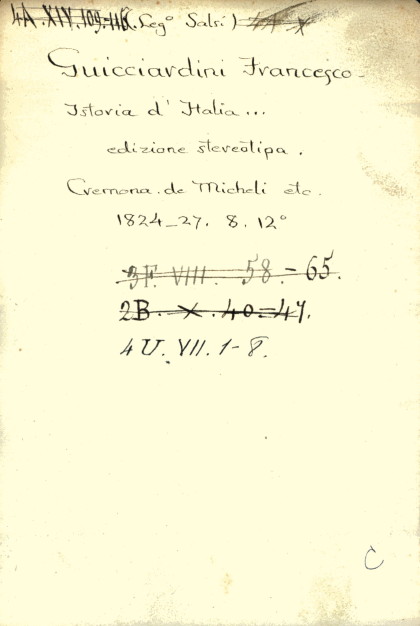 4A.XIV.109-116. (Leg° Salsi)
Guicciardini Francesco -
Istoria d' Italia ...
edizione stereotipa.
Cremona. de Micheli etc.
1824-27. 8. 12°
3F. VIII. 58.-65.
2B. X. 40=47.
4U. VII. 1-8.
C